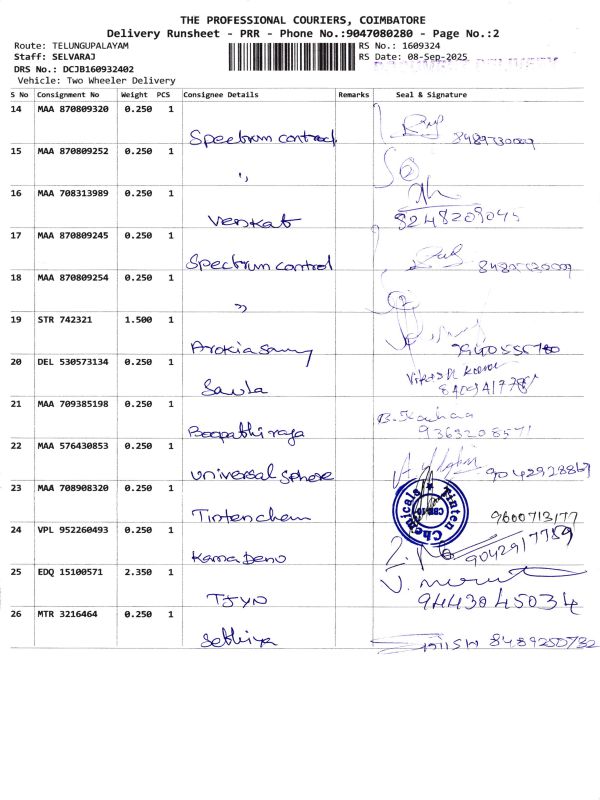 THE PROFESSIONAL COURIERS, COIMBATORE
Delivery Runsheet - PRR - Phone No.:9047080280 - Page No.:2
Route: TELUNGUPALAYAM RS No.: 1609324
Staff: SELVARAJ RS Date: 08-Sep-2025
DRS No.: DCJB160932402
Vehicle: Two Wheeler Delivery
S No Consignment No Weight PCS Consignee Details Remarks Seal & Signature
14 MAA 870809320 0.250 1
Spectrum control
15 MAA 870809252 0.250 1
"
2
16 MAA 708313989 0.250 1
Venkat 8248209045
17 MAA 870809245 0.250 1
Spectrum control
18 MAA 870809254 0.250 1
"
2
19 STR 742321 1.500 1
Arokiasamy
20 DEL 530573134 0.250 1
Savla
21 MAA 709385198 0.250 1
Boopathi raja 9363208571
22 MAA 576430853 0.250 1
universal sphere 9042928869
23 MAA 708908320 0.250 1
Tinten chem Tinten Chemicals 9600713177
24 VPL 952260493 0.250 1
9042917759
25 EDQ 15100571 2.350 1
9443045034
26 MTR 3216464 0.250 1
8489250732